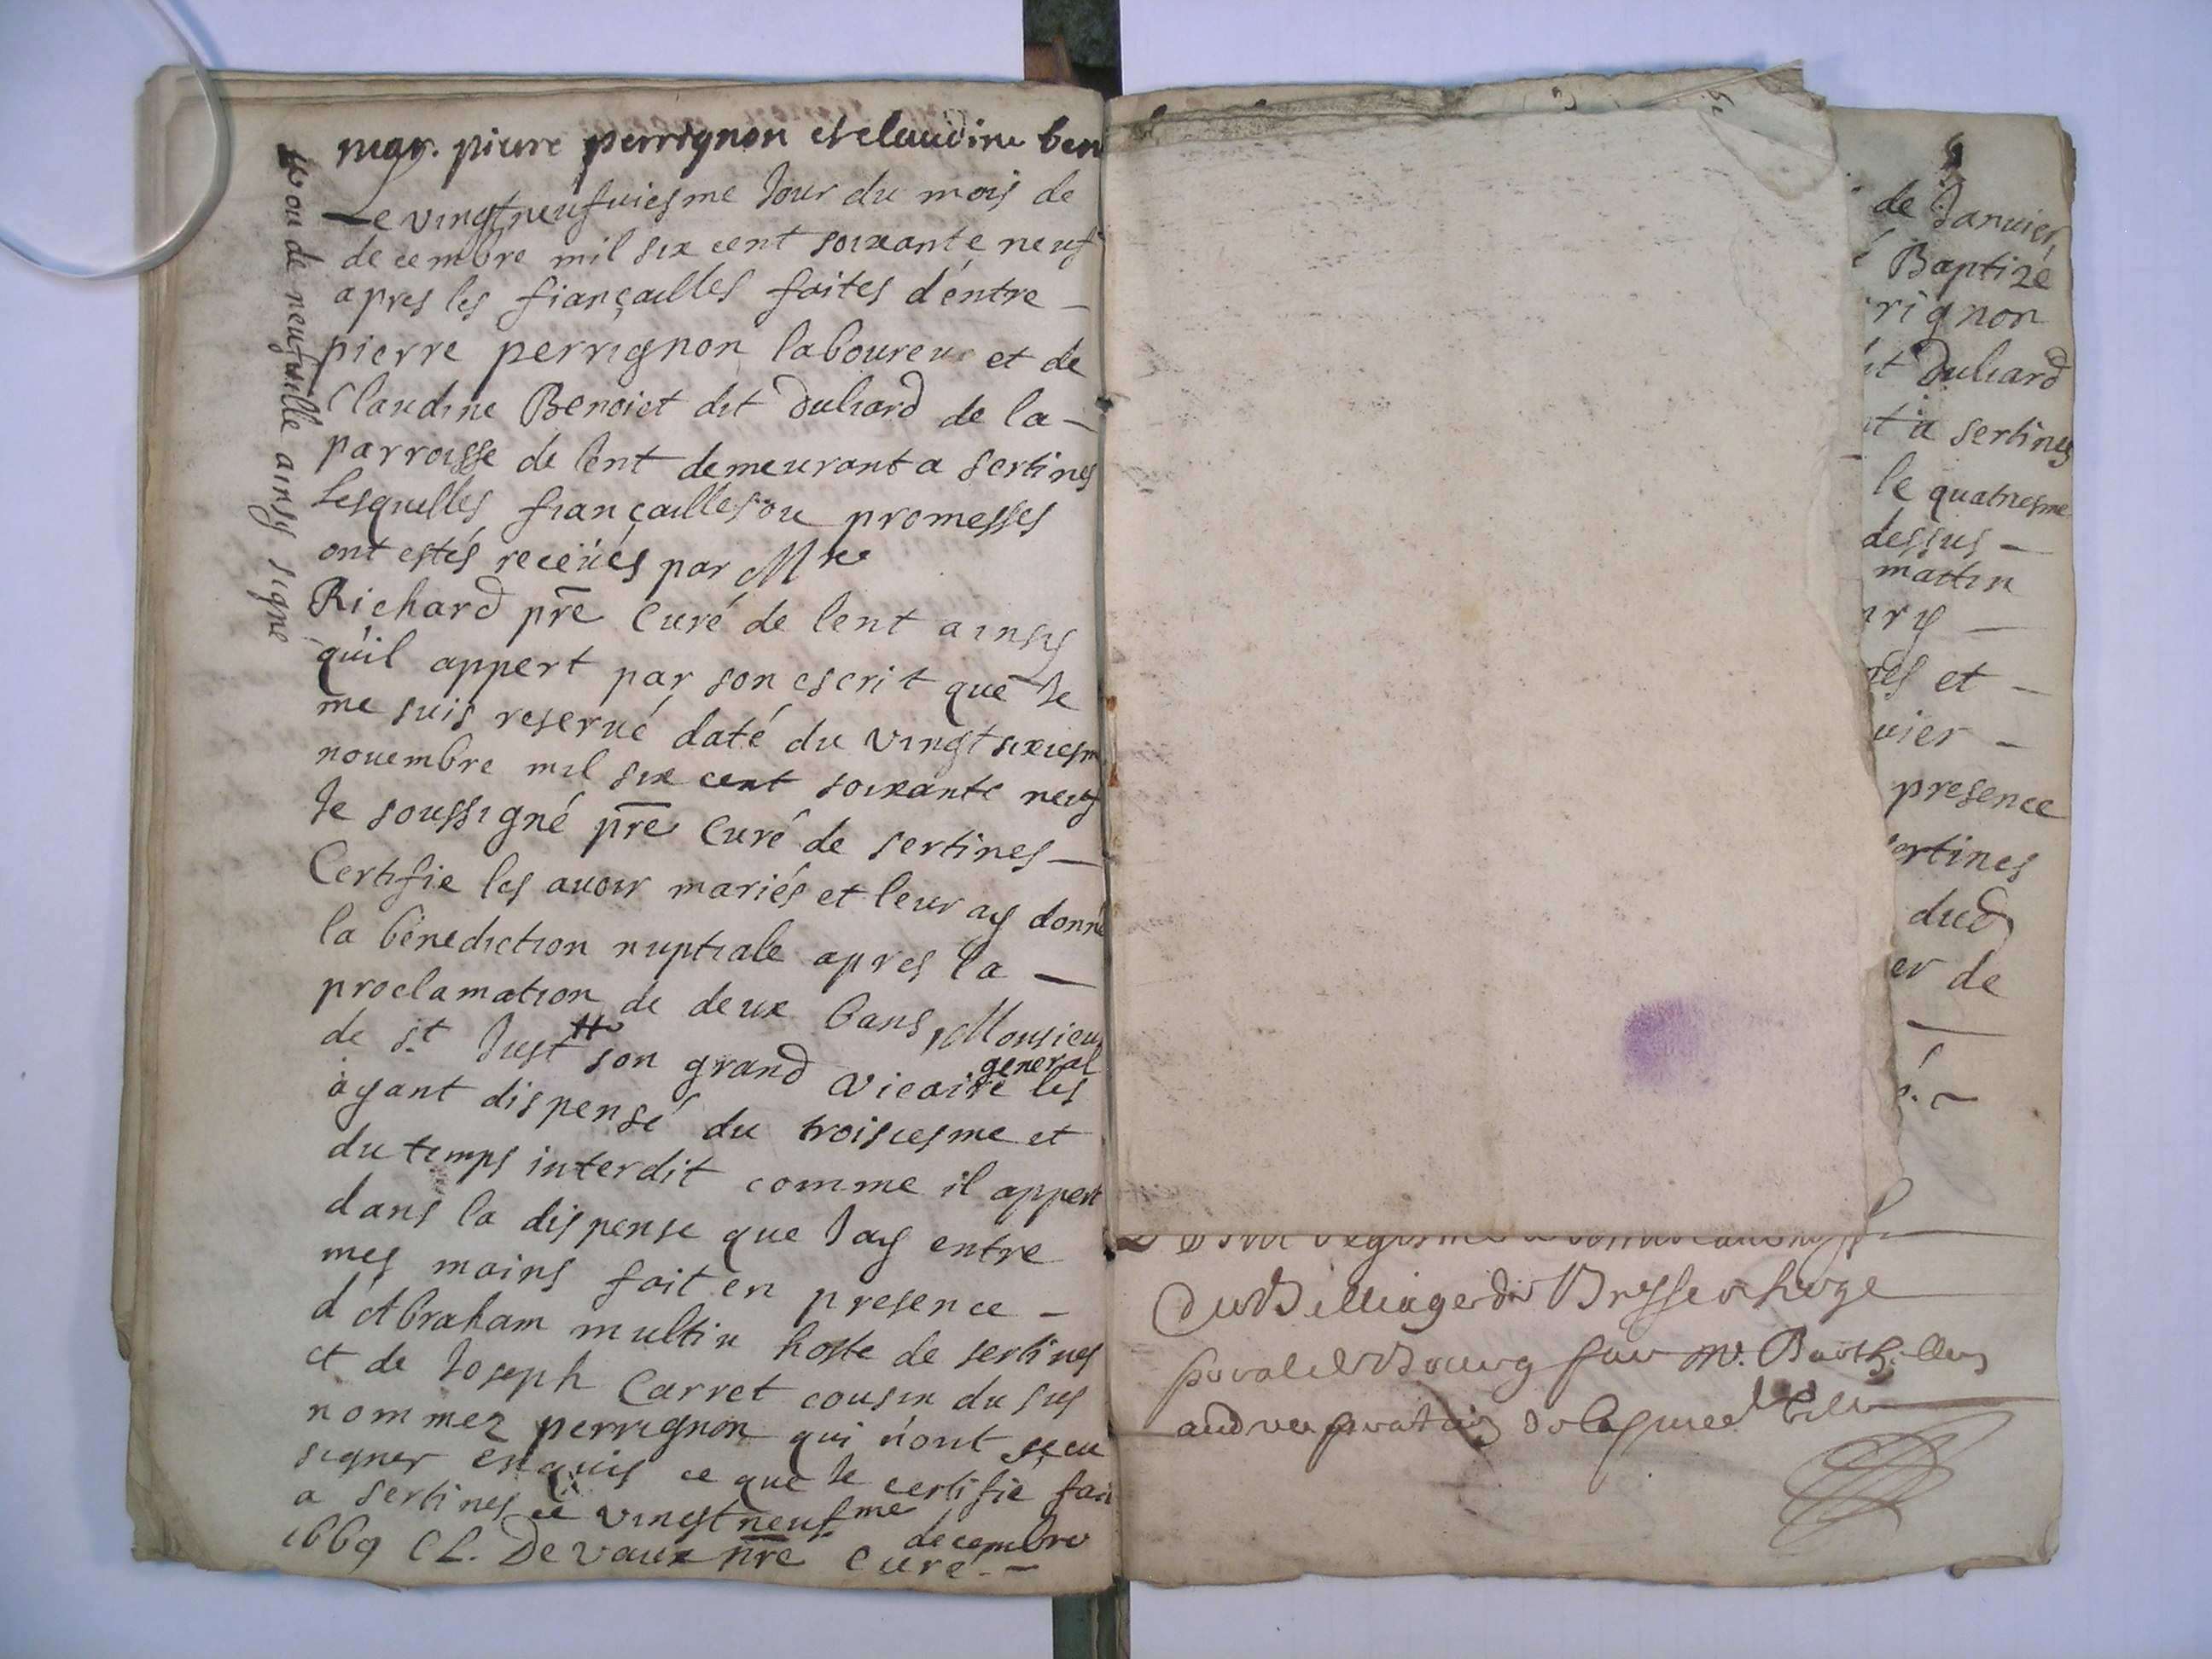 mar. pierre perrignon et claudine ben
Le vingtneufuiesme Jour du mois de
decembre mil six cent soixante neuf
apres les fiançailles faites d'entre -
pierre perrignon laboureur et de
Claudine Benoict dit duliard de la -
parroisse de lent demeurant a sertines
lesquelles fiançailles ou promesses
ont estés receües par Mre
Richard pr̄e Curé de lent ainsy
qu'il appert par son escrit que Je
me suis reserué daté du vingt sixiesm
nouembre mil six cent soixante neuf
Je soussigné pr̄e Curé de sertines -
Certifie les auoir mariés et leur ay donné
la bénediction nuptiale apres la -
proclamation de deux bans, Monsieu
de st Just # son grand vicaire general les
ayant dispensé du troisiesme et
du temps interdit comme il appert
dans la dispense que Jay entre
mes mains fait en presence -
d'Abraham multin hoste de sertines
et de Joseph Carret cousin du sus
nommez perrignon qui n'ont sçeu
signer enquis ce que Je certifie fait
a sertines ce vingt neufme decembre
1669 CL. Devaux pr̄e Curé. -
# ou de neufuille ainsy signé
de Januier
é Baptizé
rignon
it duliard
nt a sertines
le quatriesme
dessus -
mattin
nry -
nes et -
uier -
presence
ertines
dud
er de
é. -
du Belliage de Bresse
Bourg par m.